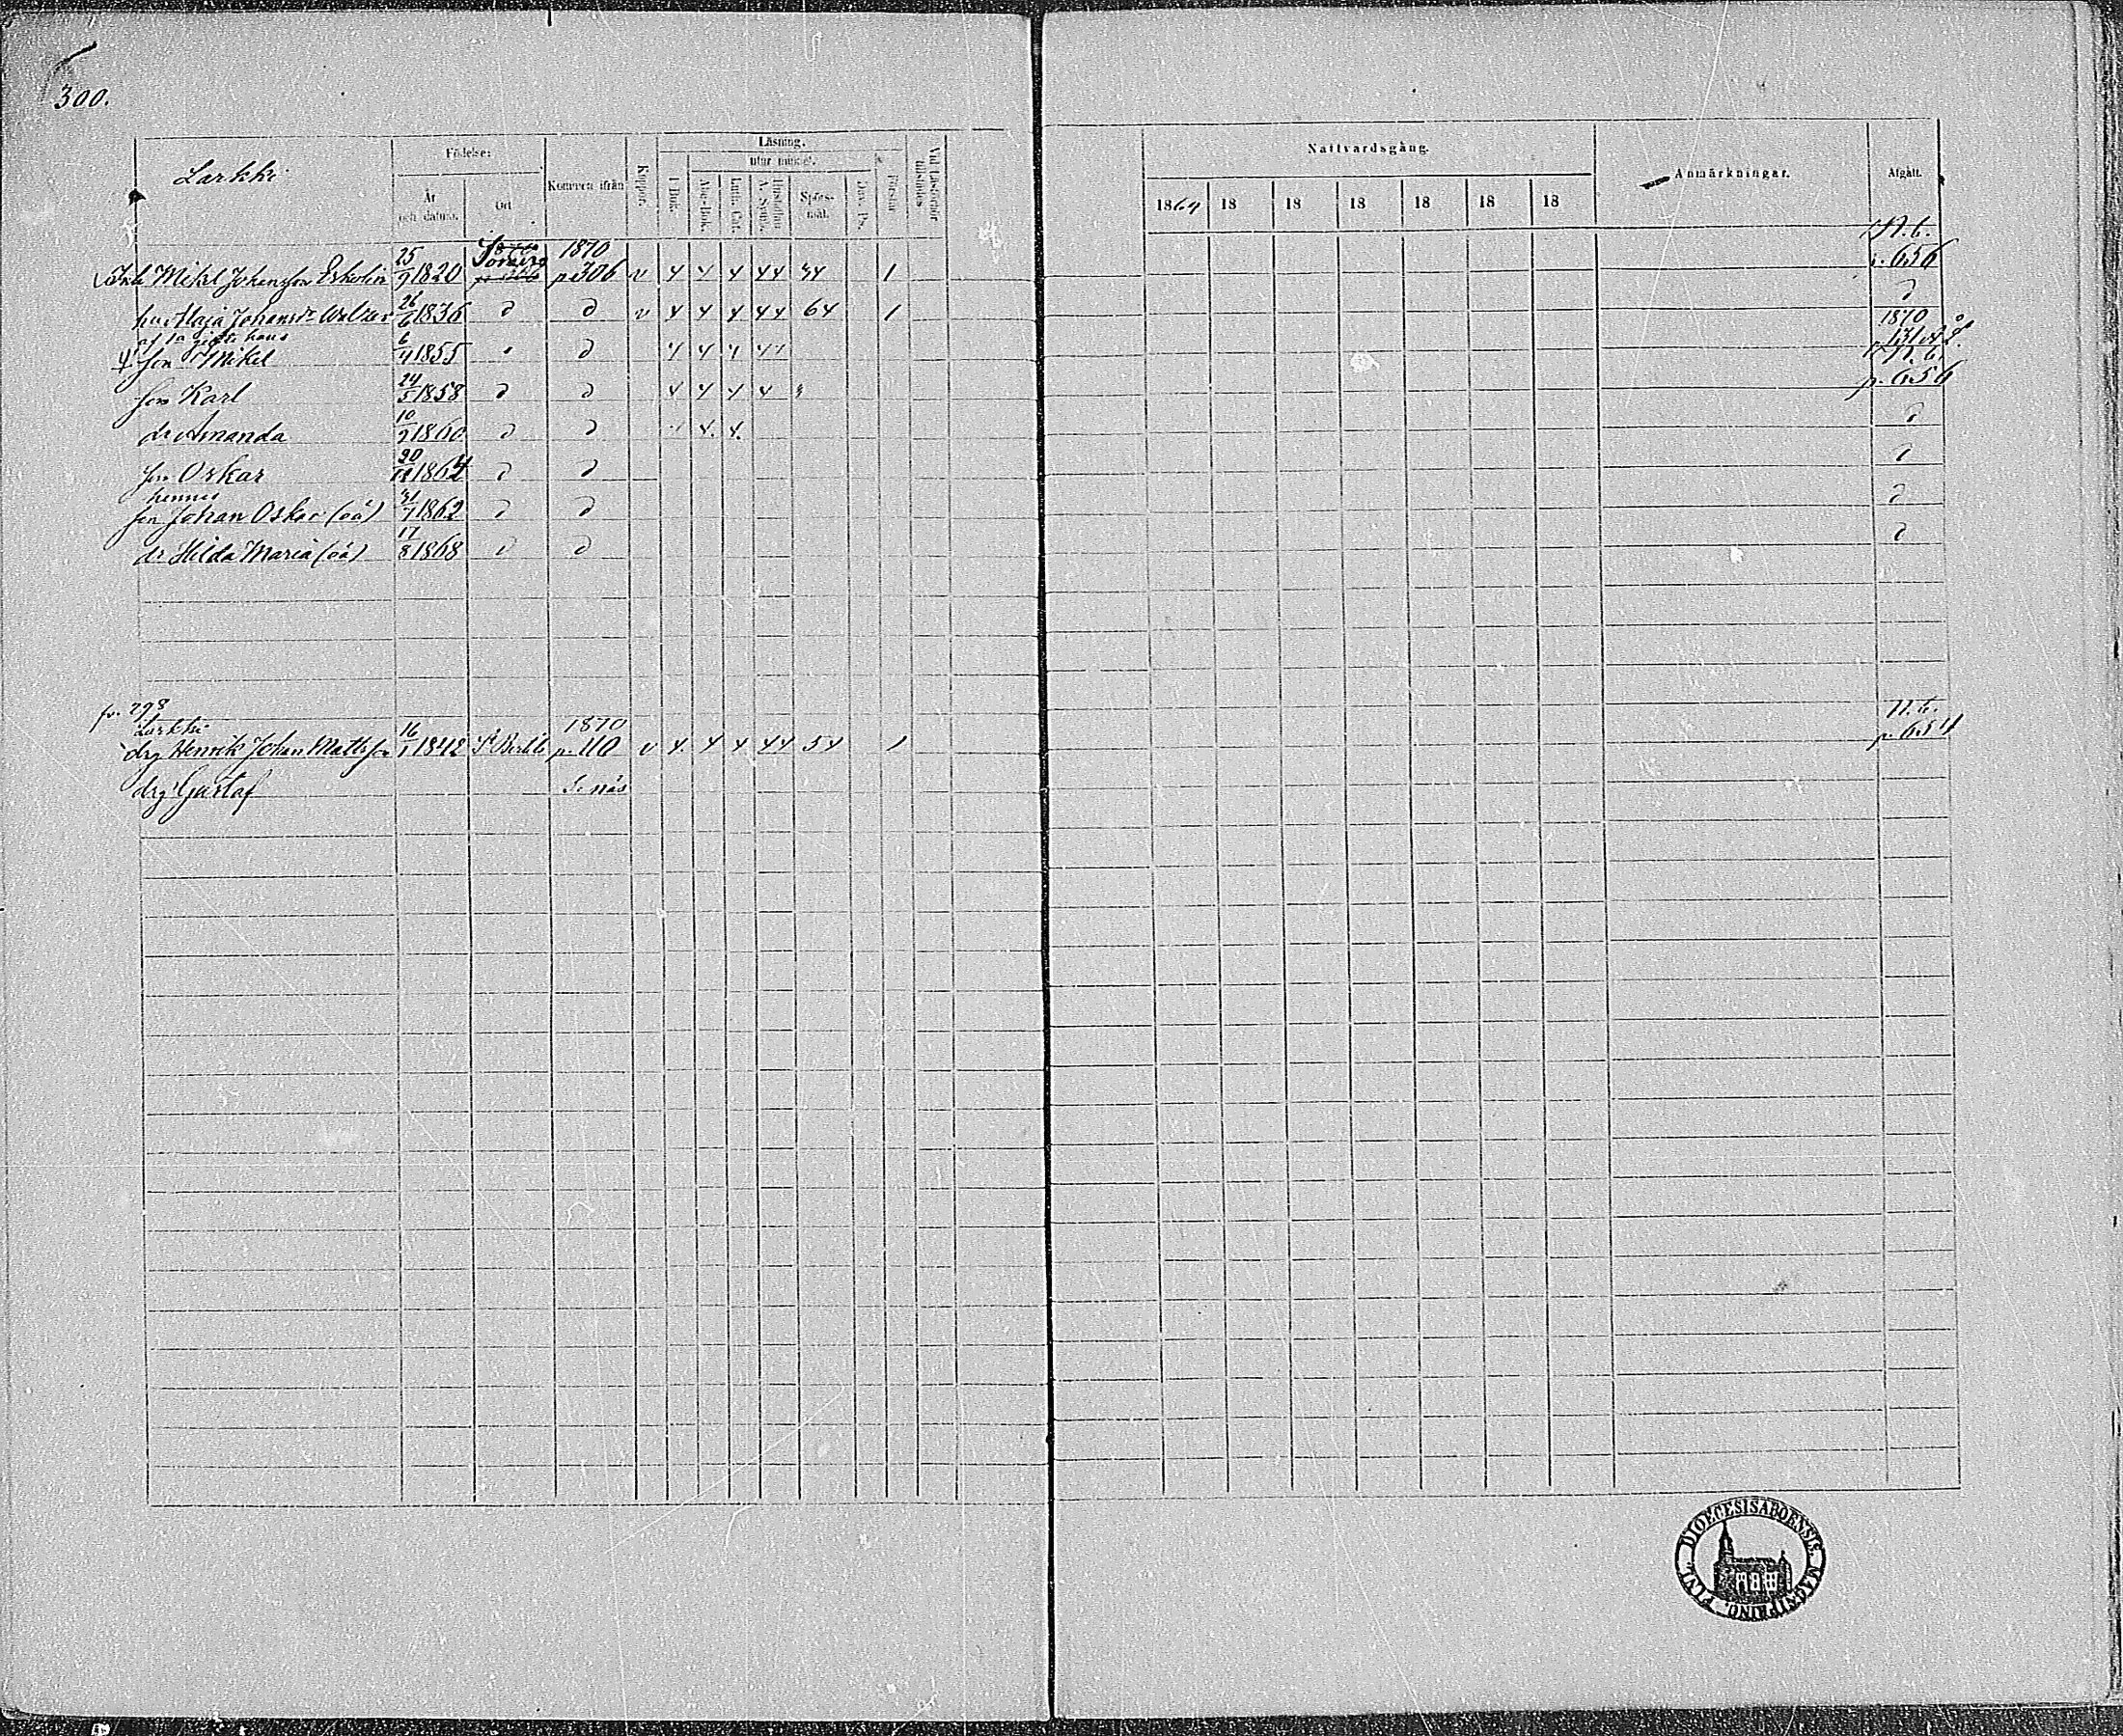 300.
Larkki
Födelse:
År och datum.
Ort
Kommen ifrån
Koppor.
Läsning.
utur minnet.
I Bok.
Abc-Bok.
Luth. Cat.
Hustaflan A. Symb.
Spörs-mål.
Dav. Ps.
Förstår
Vid Läseförhör tillstädes
Nattvardsgång.
1864 18 18 18 18 18 18
Anmärkningar.
Afgått.
Inh Mikel Johansson Eskolin 25/9 1820 1870 p. 306 v 4 4 4 44 34 1 N. b. p. 656
hu Maja Johansdr 26/6 1836 d d v 4 4 4 44 64 1 d
af 1a giftet hans
son Mikel 6/4 1855 d 4 4 4 44 1870
son Karl 24/5 1858 d d 4 4 4 4 N. b. p. 656
dr Amanda 10/2 1860 d d 4. 4. d
son Oskar 20/12 1864 d d d
hennes
son Johan Oskar (oä) 31/7 1862 d d d
dr Hilda Maria (oä) 17/8 1868 d d d
fr. 298
Larkki
drg Henrik Johan Mattsson 16/1 1842 1870 p. 110 v 4. 4 4 44 54 1 N. b. p. 654
drg Gustaf
DIOECESIS ABOENSIS. MAGNI PRINC. FINL.